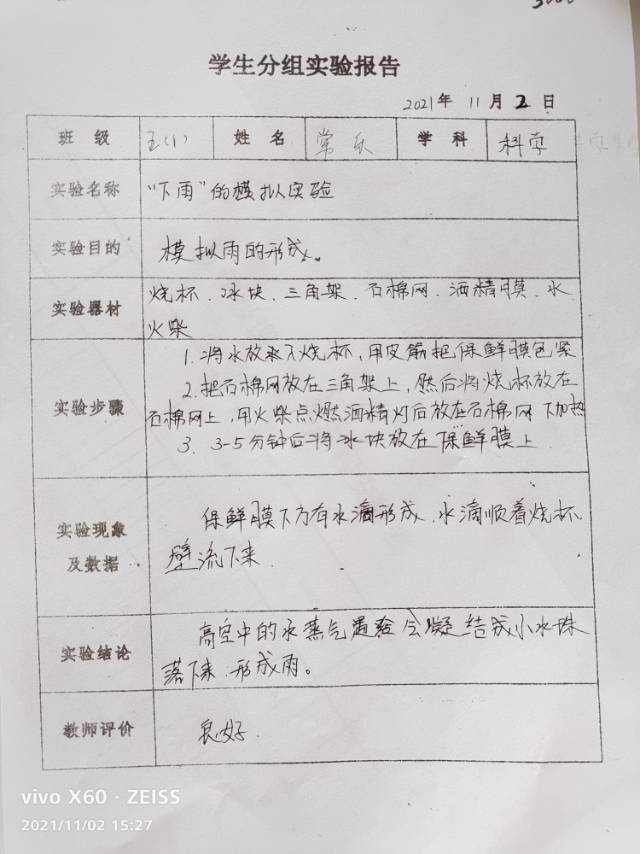 学生分组实验报告
2021年 11月2日
班 级 五(1) 姓 名 常乐 学 科 科学
实验名称 “下雨”的模拟实验
实验目的 模拟雨的形成。
实验器材 烧杯、冰块、三角架、石棉网、酒精膜、水
火柴
1. 将水放入烧杯，用皮筋把保鲜膜包紧
2. 把石棉网放在三角架上，然后将烧杯放在
实验步骤 石棉网上，用火柴点燃酒精灯后放在石棉网下加热
3. 3-5分钟后将冰块放在保鲜膜上
实验现象 保鲜膜下方有水滴形成，水滴顺着烧杯
及数据 壁流下来
高空中的水蒸气遇冷会凝结成小水珠
实验结论 落下来，形成雨。
教师评价 良好
vivo X60 · ZEISS
2021/11/02 15:27